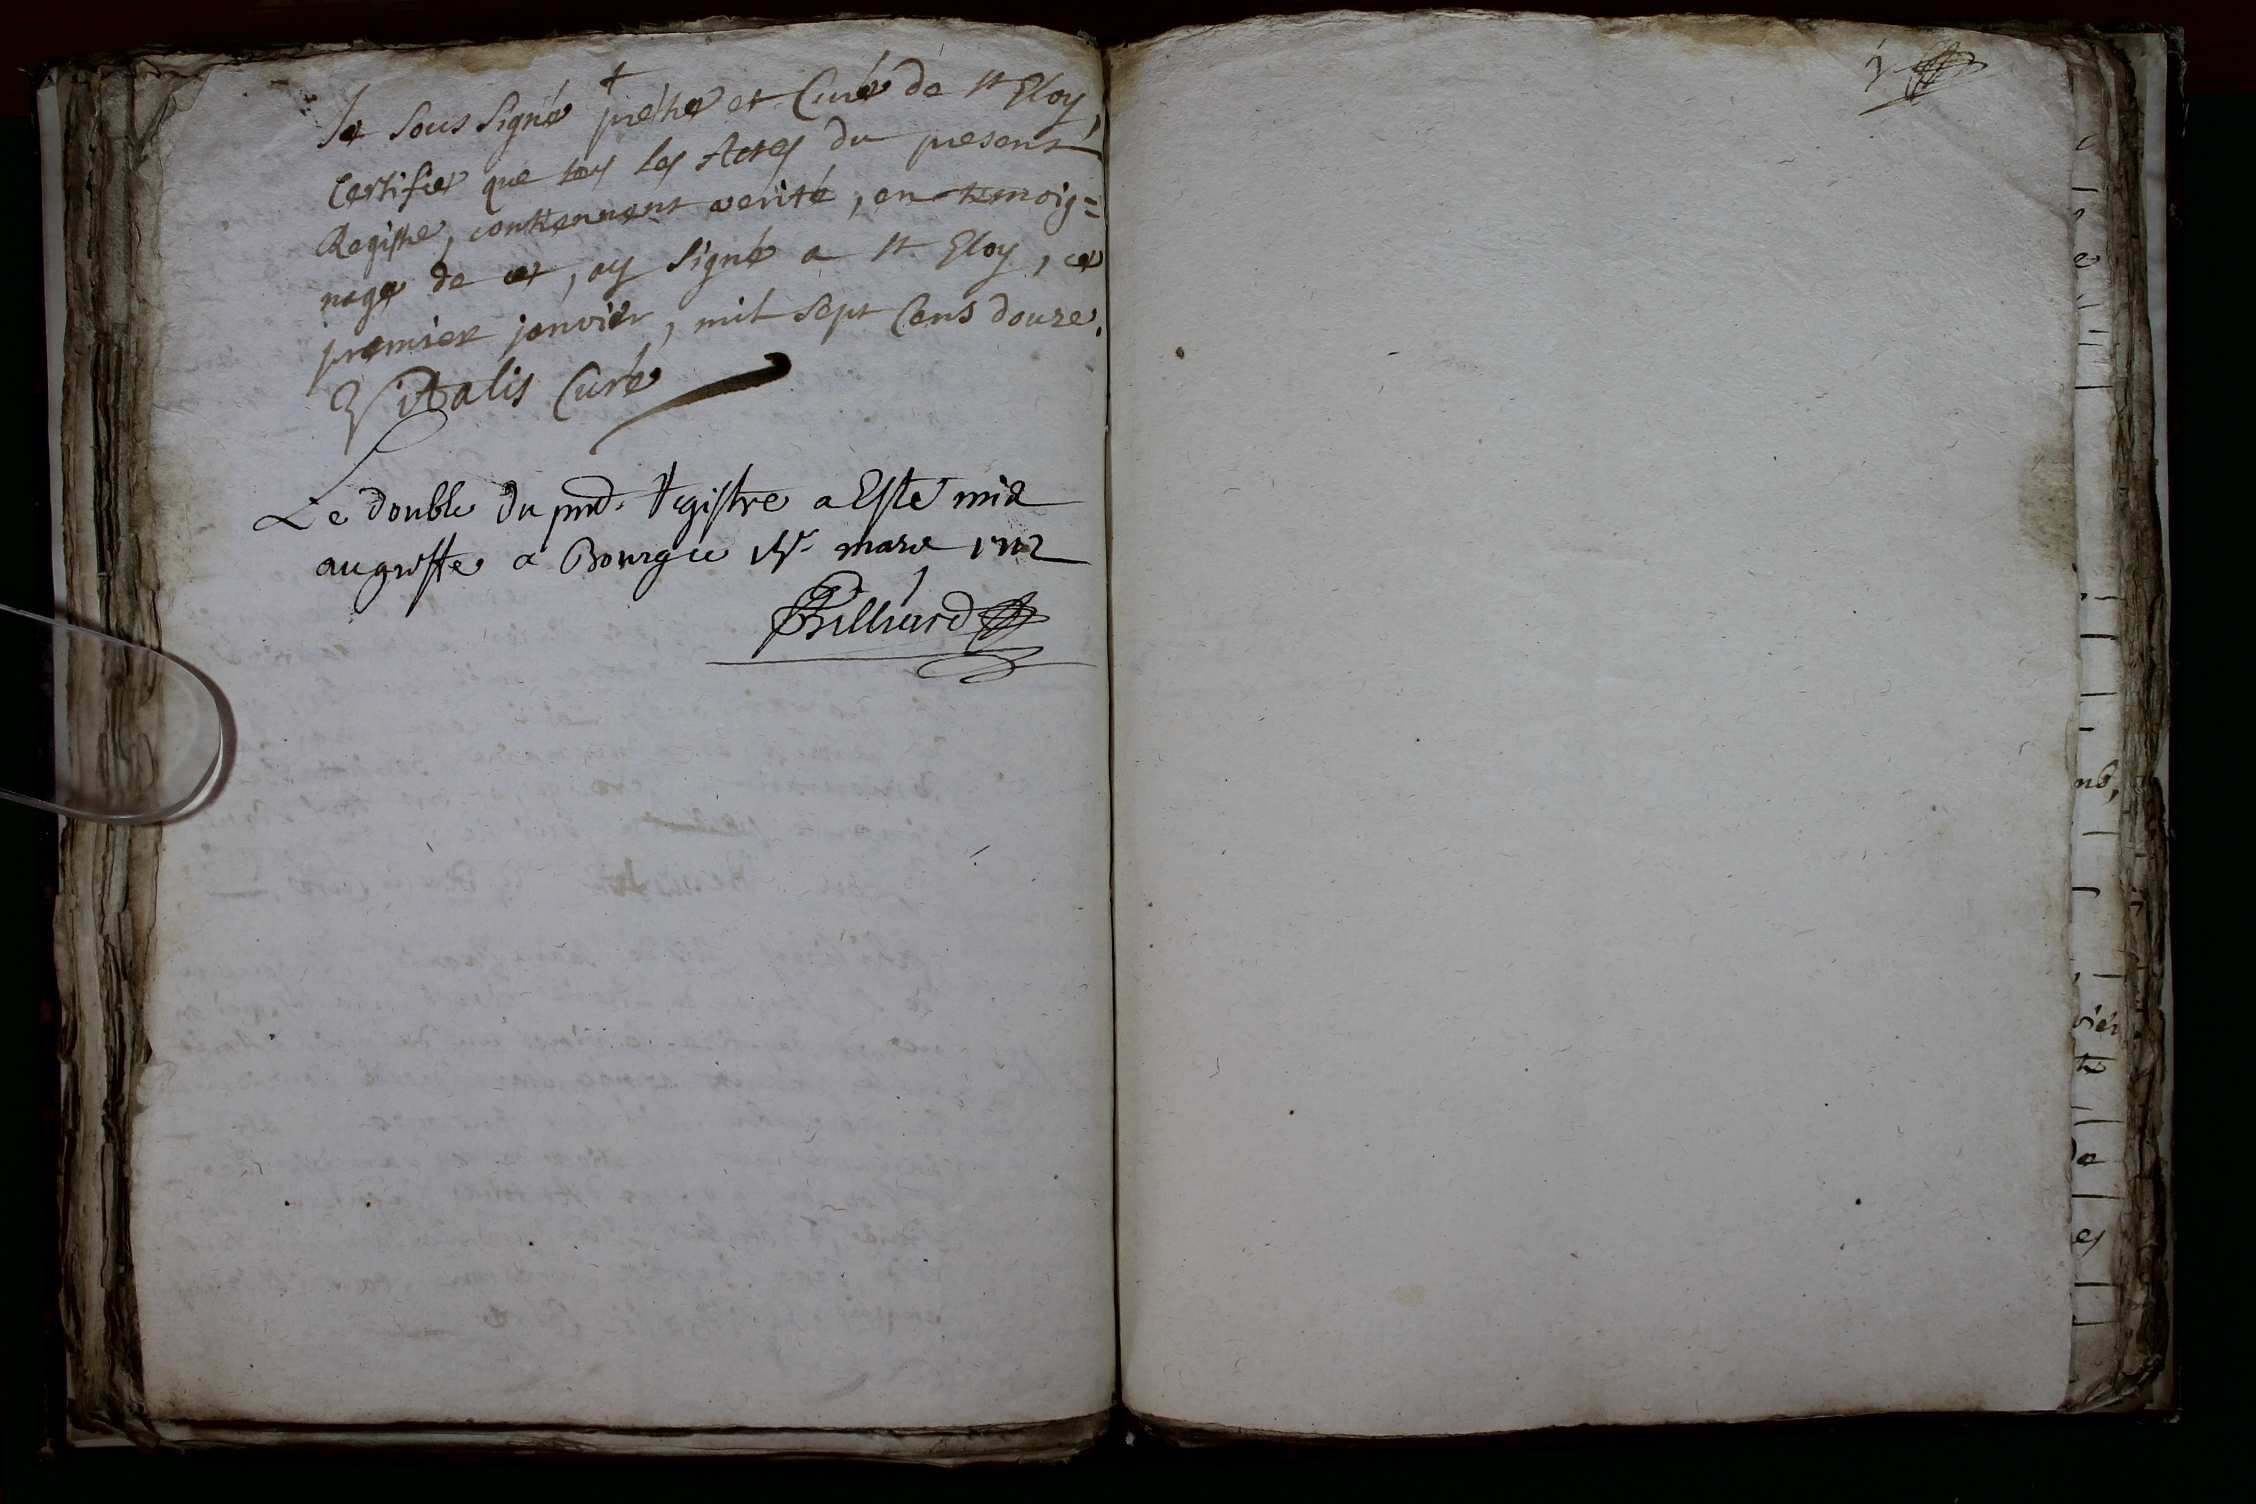 Je sous signé prêtre et Curé de st Eloy,
Certifie que tous les Actes du present
Registre, contiennent verité, en temoig=
nage de ce, ay signé a st Eloy, ce
premier janvier, mil sept cens douze.
Vitalis Curé
Le double du pnt. Registre a Esté mis
au greffe a Bourg ce mars 1712
Billiard